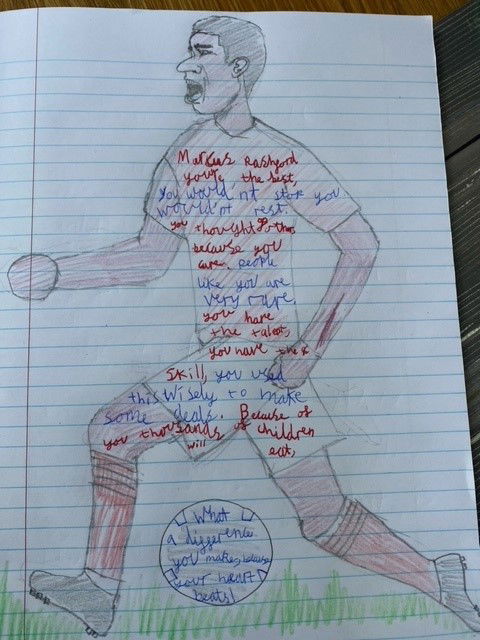 Marcus Rashford
you're the best,
you would'nt stop you
would'nt rest.
you thought of others
because you
care. people
like you are
very rare.
you have
the talent,
you have the
skill, you used
this wisely to make
some deals. Because of
you thousands of children
will eat,
What
a difference
you make, because
your heart
beats!